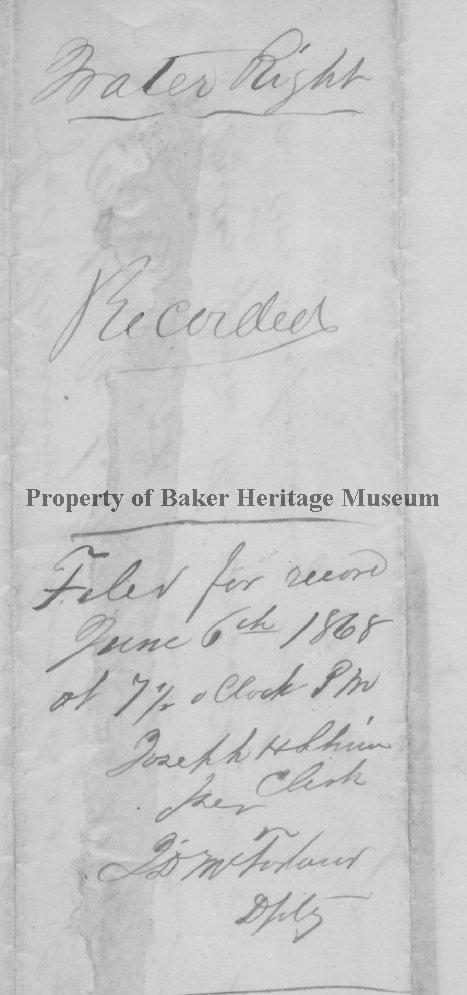 Water Right
Recorded
Property of Baker Heritage Museum
Filed for record
June 6th 1868
at 7½ oClock PM
Joseph H Shinn
Clerk
per
J D McFarland
Dpty